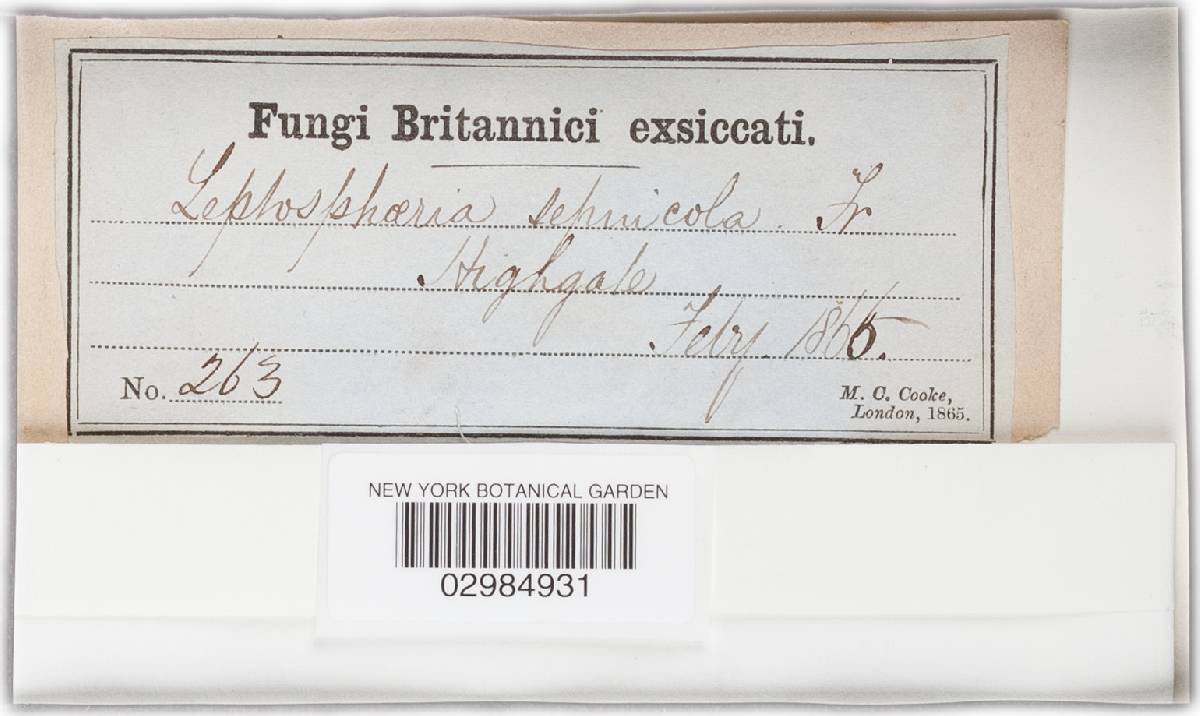 Fungi Britannici exsiccati.
Leptosphæria sepincola. Fr
Highgate
Feby. 1865.
No. 263
M. C. Cooke,
London, 1865.
NEW YORK BOTANICAL GARDEN
02984931